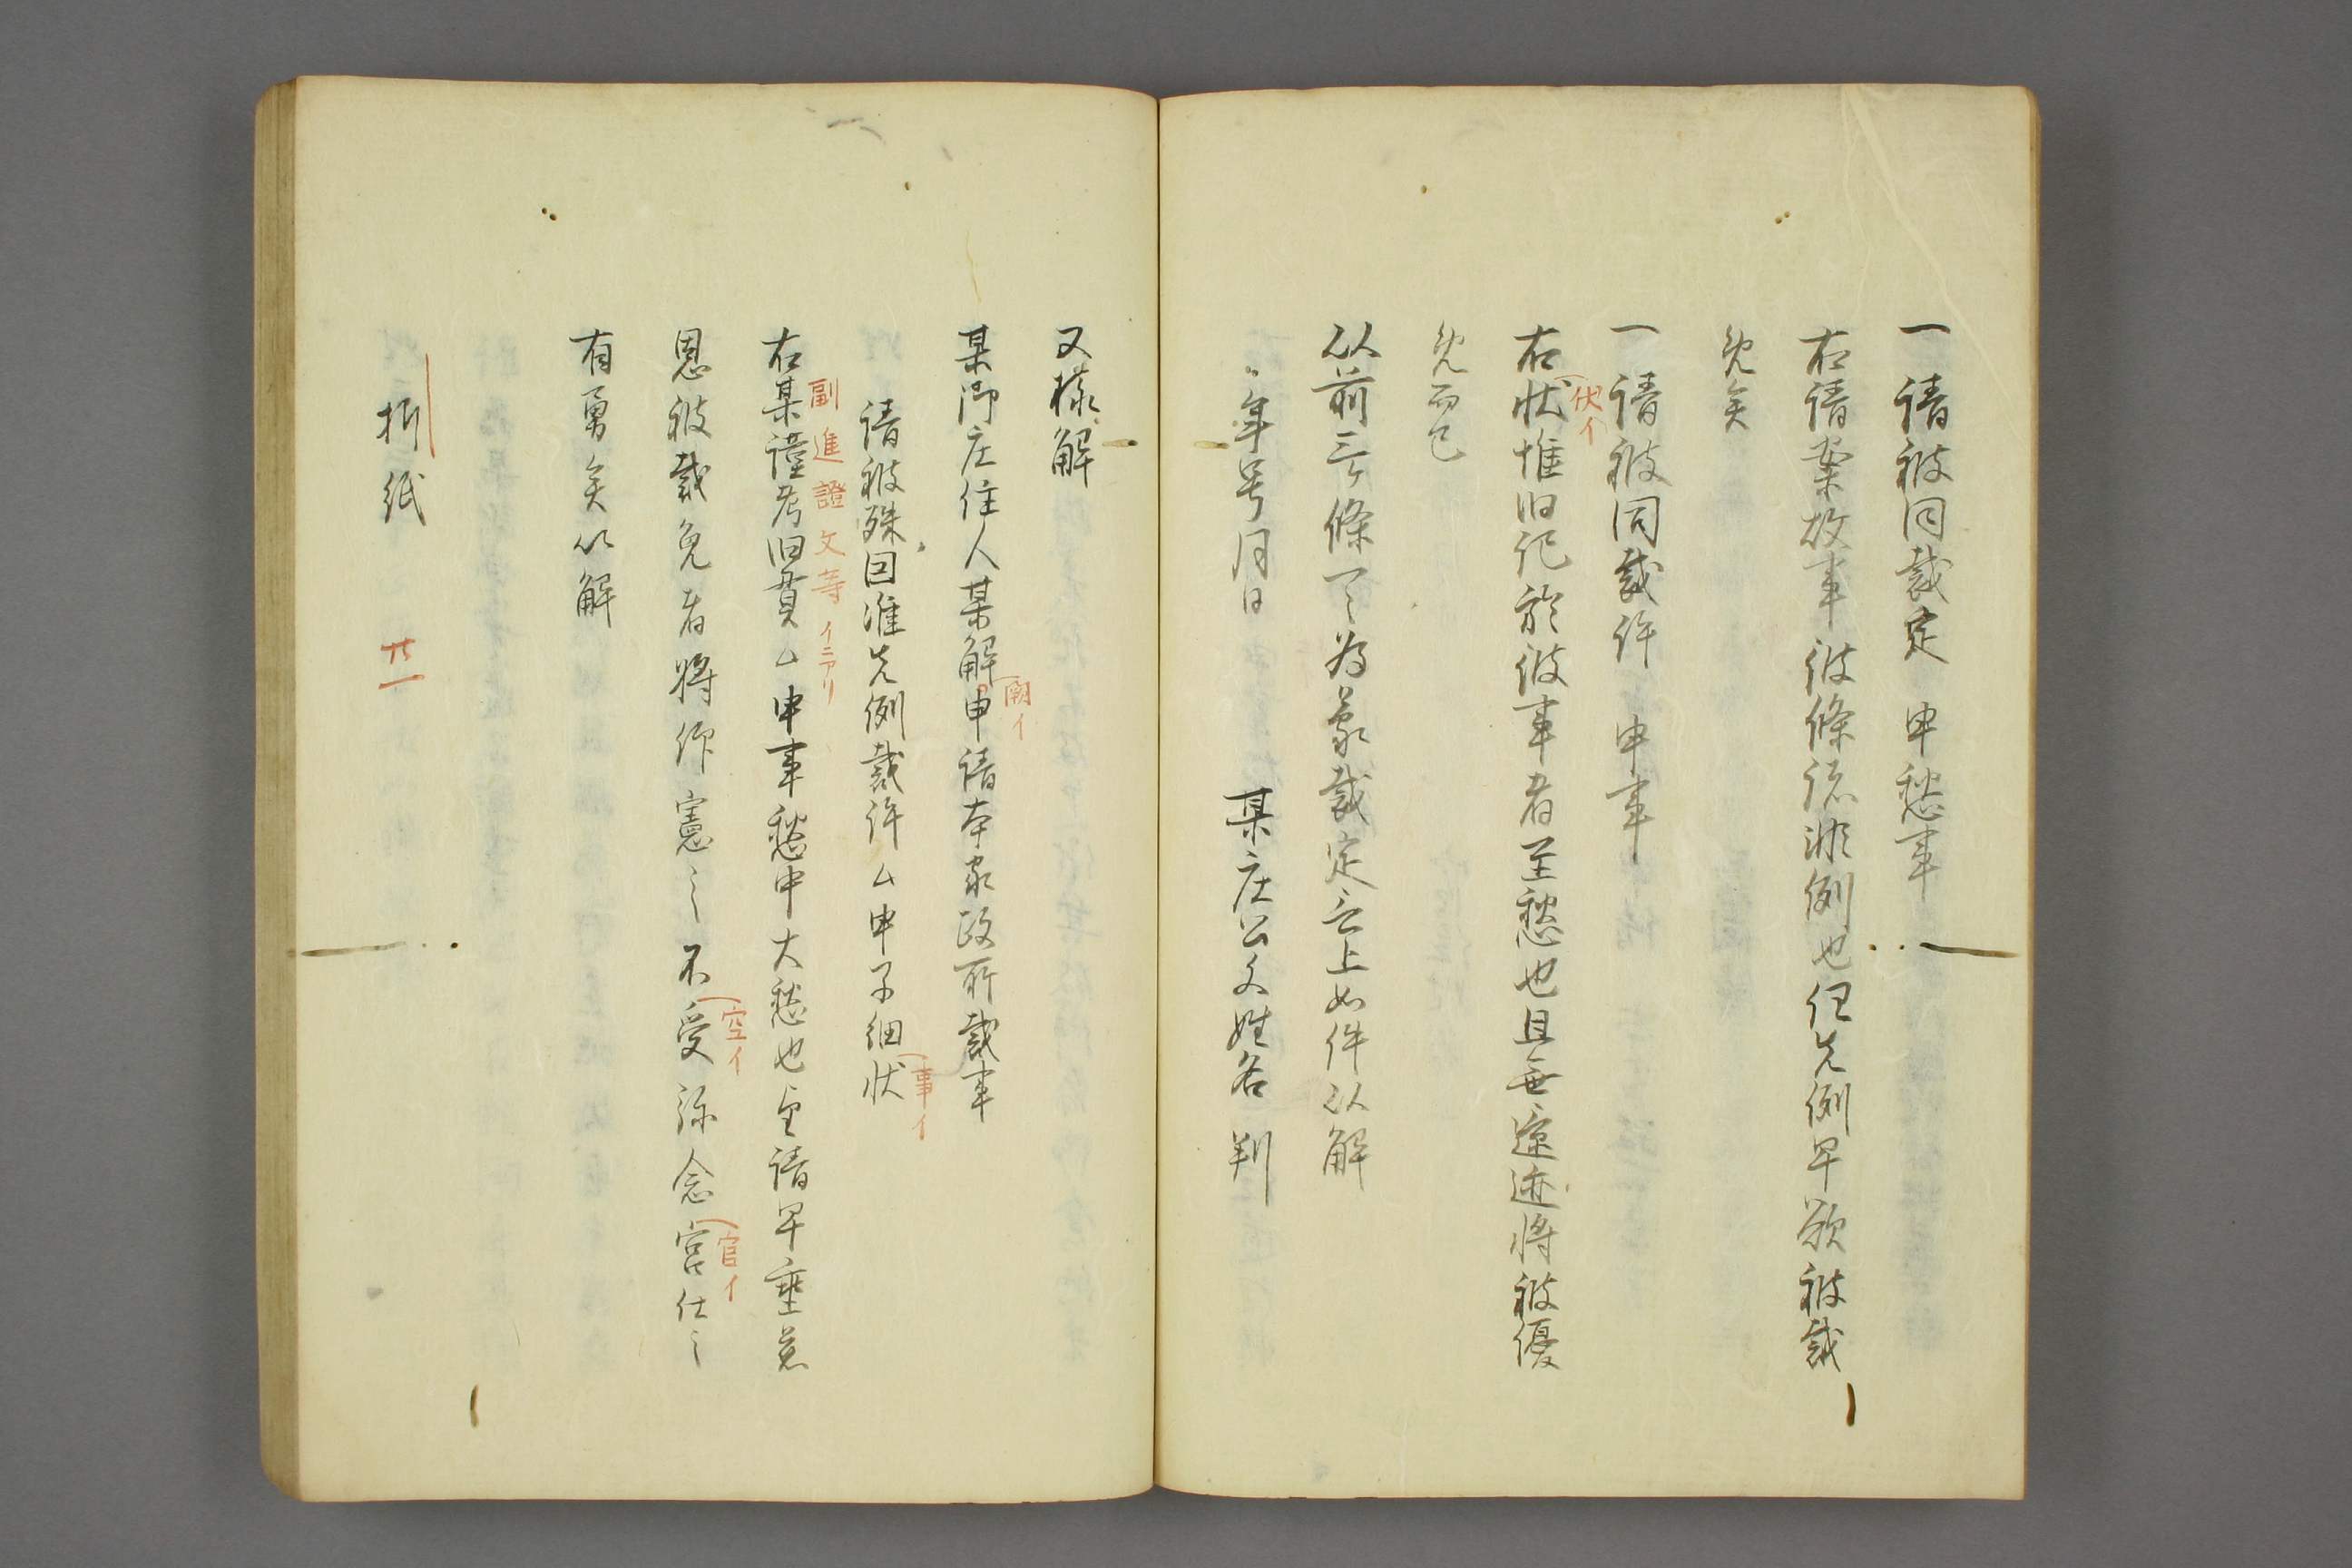 一請被同裁定　申愁事
右請案故事彼條諸淵例也但先例早欲被裁
免矣
一請被同裁許　申事
右状惟旧記於彼事者至愁也且無遠迹将被優
伏イ
免而已
以前三ケ條一々為蒙裁定言上如件以解
年号月日　某庄公文姓名判
又様解
某御庄住人某解申請本家政所裁事
闕イ
請被殊因准先例裁許ム申子細状
事イ
副進證文等イニアリ
右某謹考旧貫ム申事愁中大愁也望請早垂慈
恩被裁免者将仰憲之不受弥念宮仕之
空イ
官イ
有勇矣以解
折紙　廿一